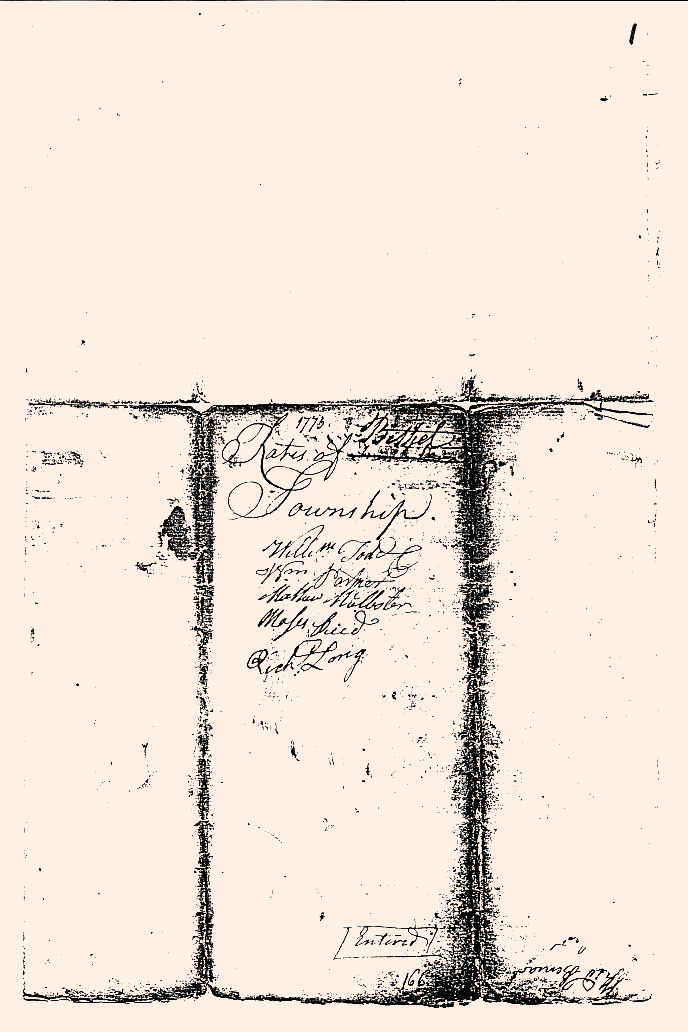 1
1775
Rates of Bethel
Township.
Will:m Todd
Wm Parker
Mathew
Moses Reed
Rich. Long
[Entered]
166